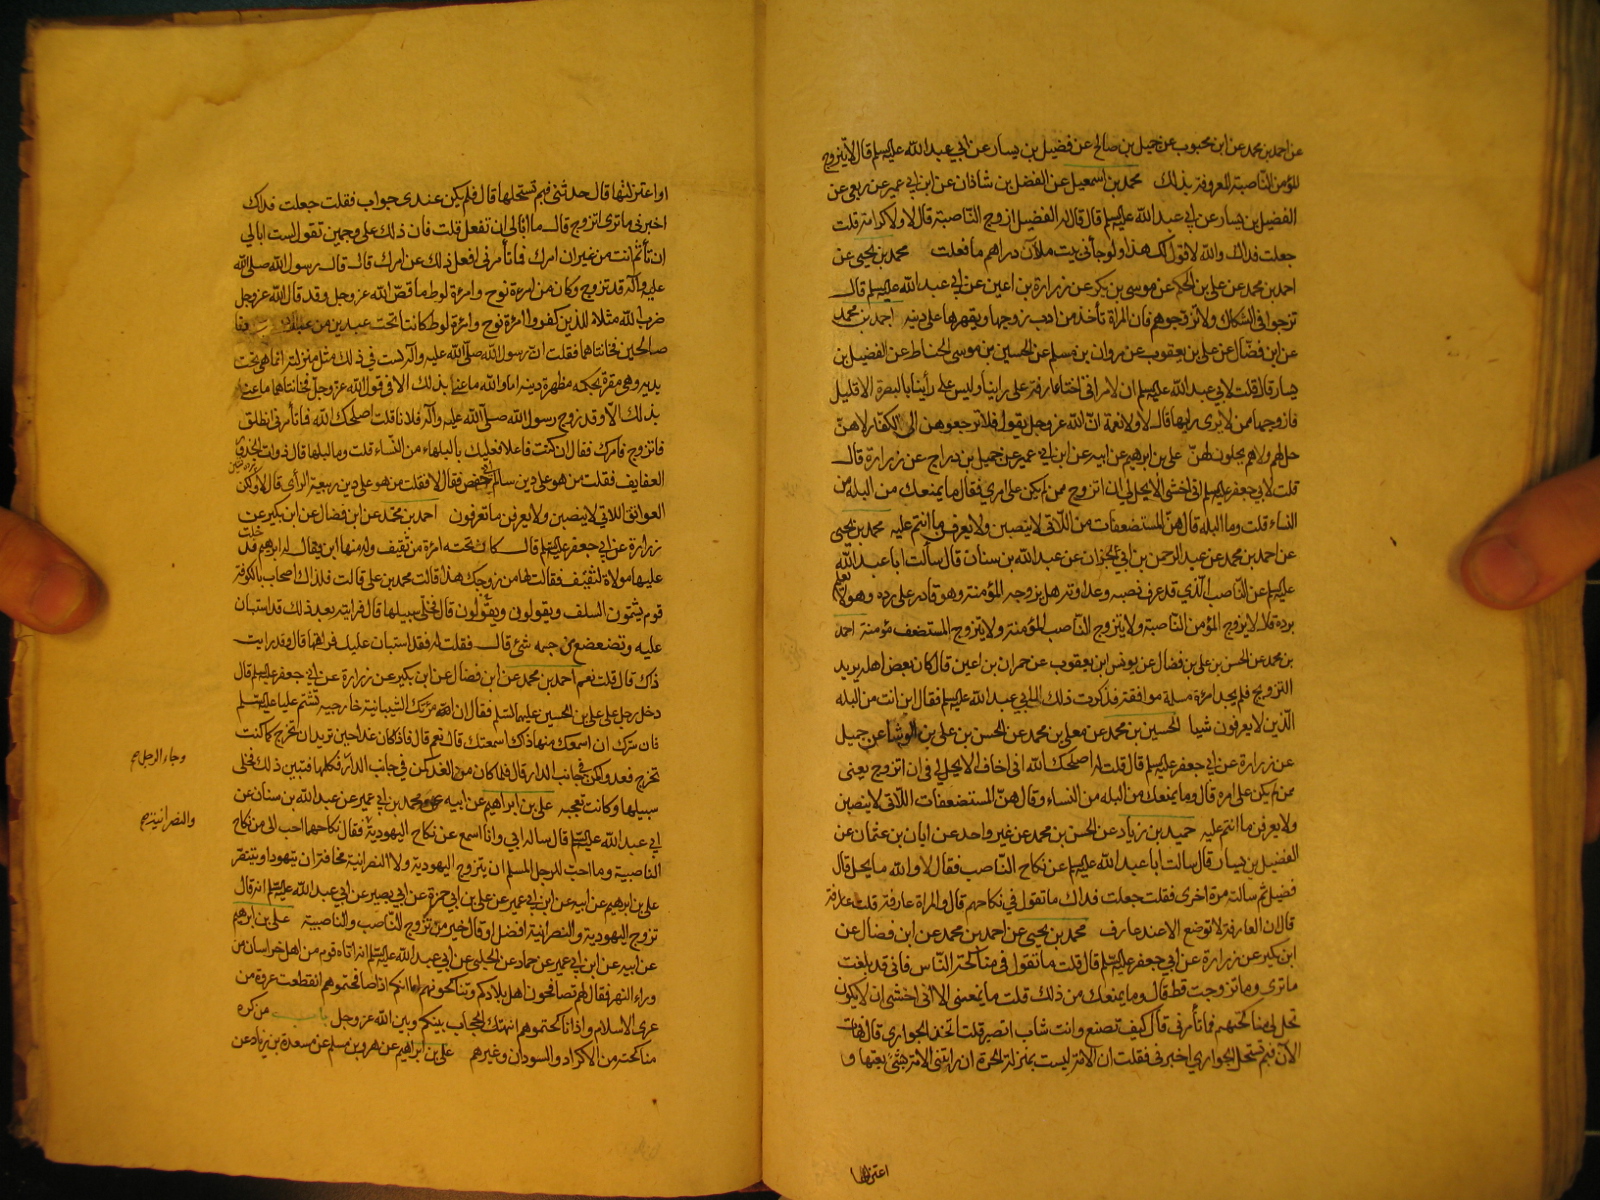 عن احمد بن محمد عن ابن محبوب عن جميل بن صالح عن فضيل بن يسار عن ابي عبد الله عليه السلم قال لا يتزوج
المؤمن الناصبة المعروفة بذلك محمد بن اسمعيل عن الفضل بن شاذان عن ابن ابي عمير عن ربعي عن
الفضيل بن يسار عن ابي عبد الله عليه السلم قال قال له الفضيل ازوج الناصبة قال لا ولا كرامة قلت
جعلت فداك والله لاقول لك هذا ولو جاءني ببيت ملآن دراهم ما فعلت محمد بن يحيى عن
احمد بن محمد عن علي بن الحكم عن موسى بن بكر عن زرارة بن اعين عن ابي عبد الله عليه السلم قال
تزوجوا في الشكاك ولا تزوجوهم فان المراة تأخذ من ادب زوجها ويقهرها على دينه احمد بن محمد
عن ابن فضال عن علي بن يعقوب عن مروان بن مسلم عن الحسين بن موسى الحناط عن الفضيل بن
يسار قال قلت لابي عبد الله عليه السلم ان لامراتي اختا عارفة على راينا وليس على رأينا بالبصرة الا قليل
فازوجها ممن لا يرى رايها قال لا ولا نعمة ان الله عز وجل يقول فلا ترجعوهن الى الكفار لا هن
حل لهم ولا هم يحلون لهن علي بن ابرهيم عن ابيه عن ابن ابي عمير عن جميل بن دراج عن زرارة قال
قلت لابي جعفر عليه السلم اني اخشى الا يحل لي ان اتزوج ممن لم يكن على امري فقال ما يمنعك من البله من
النساء قلت وما البله قال هن المستضعفات من اللاتي لا ينصبن ولا يعرفن ما انتم عليه محمد بن يحيى
عن احمد بن محمد عن عبد الرحمن بن ابي نجران عن عبد الله بن سنان قال سألت ابا عبد الله
عليه السلم عن الناصب الذي قد عرف نصبه وعداوته هل يزوجه المؤمنة وهو قادر على رده وهو لا يعلم
برده قال لا يزوج المؤمن الناصبة ولا يتزوج الناصب المؤمنة ولا يتزوج المستضعف مؤمنة احمد
بن محمد عن الحسن بن علي بن فضال عن يونس ابن يعقوب عن حمران بن اعين قال كان بعض اهله يريد
التزويج فلم يجد امرءة مسلمة موافقة فذكرت ذلك لابي عبد الله عليه السلم فقال اين انت من البله
الذين لا يعرفون شيا الحسين بن محمد عن معلى بن محمد عن الحسن بن علي بن الوشا عن جميل
عن زرارة عن ابي جعفر عليه السلم قال قلت له اصلحك الله اني اخاف الا يحل لي في ان اتزوج يعني
ممن لم يكن على امره قال وما يمنعك من البله من النساء وقال هن المستضعفات اللاتي لا ينصبن
ولا يعرفن ما انتم عليه حميد بن زياد عن الحسن بن محمد عن غير واحد عن ابان بن عثمان عن
الفضيل بن يسار قال سالت ابا عبد الله عليه السلم عن نكاح الناصب فقال لا والله ما يحل قال
فضيل ثم سالته مرة اخرى فقلت جعلت فداك ما تقول في نكاحهم قال والمراة عارفة قلت عارفة
قال ان العارفة لا توضع الا عند عارف محمد بن يحيى عن احمد بن محمد عن ابن فضال عن
ابن بكير عن زرارة عن ابي جعفر عليه السلم قال قلت ما تقول في مناكحة الناس فاني قد بلغت
ما ترى وما تزوجت قط قال وما يمنعك من ذلك قلت ما يمنعني الا اني اخشى ان لا يكون
تحل لي مناكحتهم فما تأمرني قال كيف تصنع وانت شاب اتصبر قلت اتخذ الجواري قال فهات
الآن فبم تستحل الجواري اخبرني فقلت ان الامة ليست بمنزلة الحرة ان رابتني الامة بشئ بعتها و
اعتزلتها
او اعتزلتها قال حدثني فبم تستحلها قال فلم يكن عندي جواب فقلت جعلت فداك
اخبرني ما ترى اتزوج قال ما ابالي ان تفعل قلت فان ذلك على وجهين تقول لست ابالي
ان تأثم انت من غير ان امرك فما تأمرني افعل ذلك عن امرك قال قال رسول الله صلى الله
عليه وآله قد تزوج وكان من امرءة نوح وامرءة لوط ما قص الله عز وجل وقد قال الله عز وجل
ضرب الله مثلا للذين كفروا امرءة نوح وامرءة لوط كانتا تحت عبدين من عبادنا
صالحين فخانتاهما فقلت ان رسول الله صلى الله عليه وآله لست في ذلك مثل منزلته انما هي تحت
يديه وهي مقرة بحكمه مظهرة دينه اما والله ما عنى بذلك الا في قول الله عز وجل فخانتاهما ما عنى
بذلك الا وقد زوج رسول الله صلى الله عليه وآله فلانا قلت اصلحك الله فما تأمرني انطلق
فاتزوج فامرك فقال ان كنت فاعلا فعليك بالبلهاء من النساء قلت وما البلها قال ذوات الخدور
العفايف فقلت من هو على دين سالم ابي حفص فقال لا فقلت من هو على دين ربيعة الرأي قال لا ولكن
العواتق اللاتي لا ينصبن ولا يعرفن ما تعرفون احمد بن محمد عن ابن فضال عن ابن بكير عن
زرارة عن ابي جعفر عليه السلم قال كانت تحته امرءة من ثقيف وله منها ابن يقال له ابرهيم فدخلت
عليها مولاة لثقيف فقالت لها من زوجك هذا قالت محمد بن علي قالت فلذلك اصحاب بالكوفة
قوم يشتمون السلف ويقولون ويقولون قال فخلى سبيلها قال فرايته بعد ذلك قد استبان
عليه وتضعضع من جسمه شئ قال فقلت له قد استبان عليك فراقها قال وقد رايت
ذاك قال قلت نعم احمد بن محمد عن ابن فضال عن ابن بكير عن زرارة عن ابي جعفر عليه السلم قال
دخل رجل على علي بن الحسين عليهما السلم فقال ان امرئتك الشيبانية خارجية تشتم عليا عليه السلم
فان سرك ان اسمعك منها ذاك اسمعتك قال نعم قال فاذا كان غدا حين تريد ان تخرج كما كنت
تخرج فعد واكمن في جانب الدار قال فلما كان من الغد كمن في جانب الدار فكلمها فتبين ذلك فخلى
وجاء الرجل
سبيلها وكانت تعجبه علي بن ابراهيم عن ابيه عن محمد بن ابي عمير عن عبد الله بن سنان عن
ابي عبد الله عليه السلم قال ساله ابي وانا اسمع عن نكاح اليهودية فقال نكاحهما احب الي من نكاح
والنصرانية
الناصبية وما احب للرجل المسلم ان يتزوج اليهودية ولا النصرانية مخافة ان يتهود او يتنصر
علي بن ابرهيم عن ابيه عن ابن ابي عمير عن علي بن ابي حمزة عن ابي بصير عن ابي عبد الله عليه السلم انه قال
تزوج اليهودية والنصرانية افضل او قال خير من تزوج الناصب والناصبية علي بن ابرهيم
عن ابيه عن ابن ابي عمير عن حماد عن الحلبي عن ابي عبد الله عليه السلم انه اتاه قوم من اهل خراسان من
وراء النهر فقال لهم تصافحون اهل بلادكم وتناكحونهم اما انكم اذا صافحتموهم انقطعت عروة من
عرى الاسلام واذا ناكحتموهم انهتك الحجاب بينكم وبين الله عز وجل باب من كره
مناكحته من الاكراد والسودان وغيرهم علي بن ابراهيم عن هرون بن مسلم عن مسعدة بن زياد عن